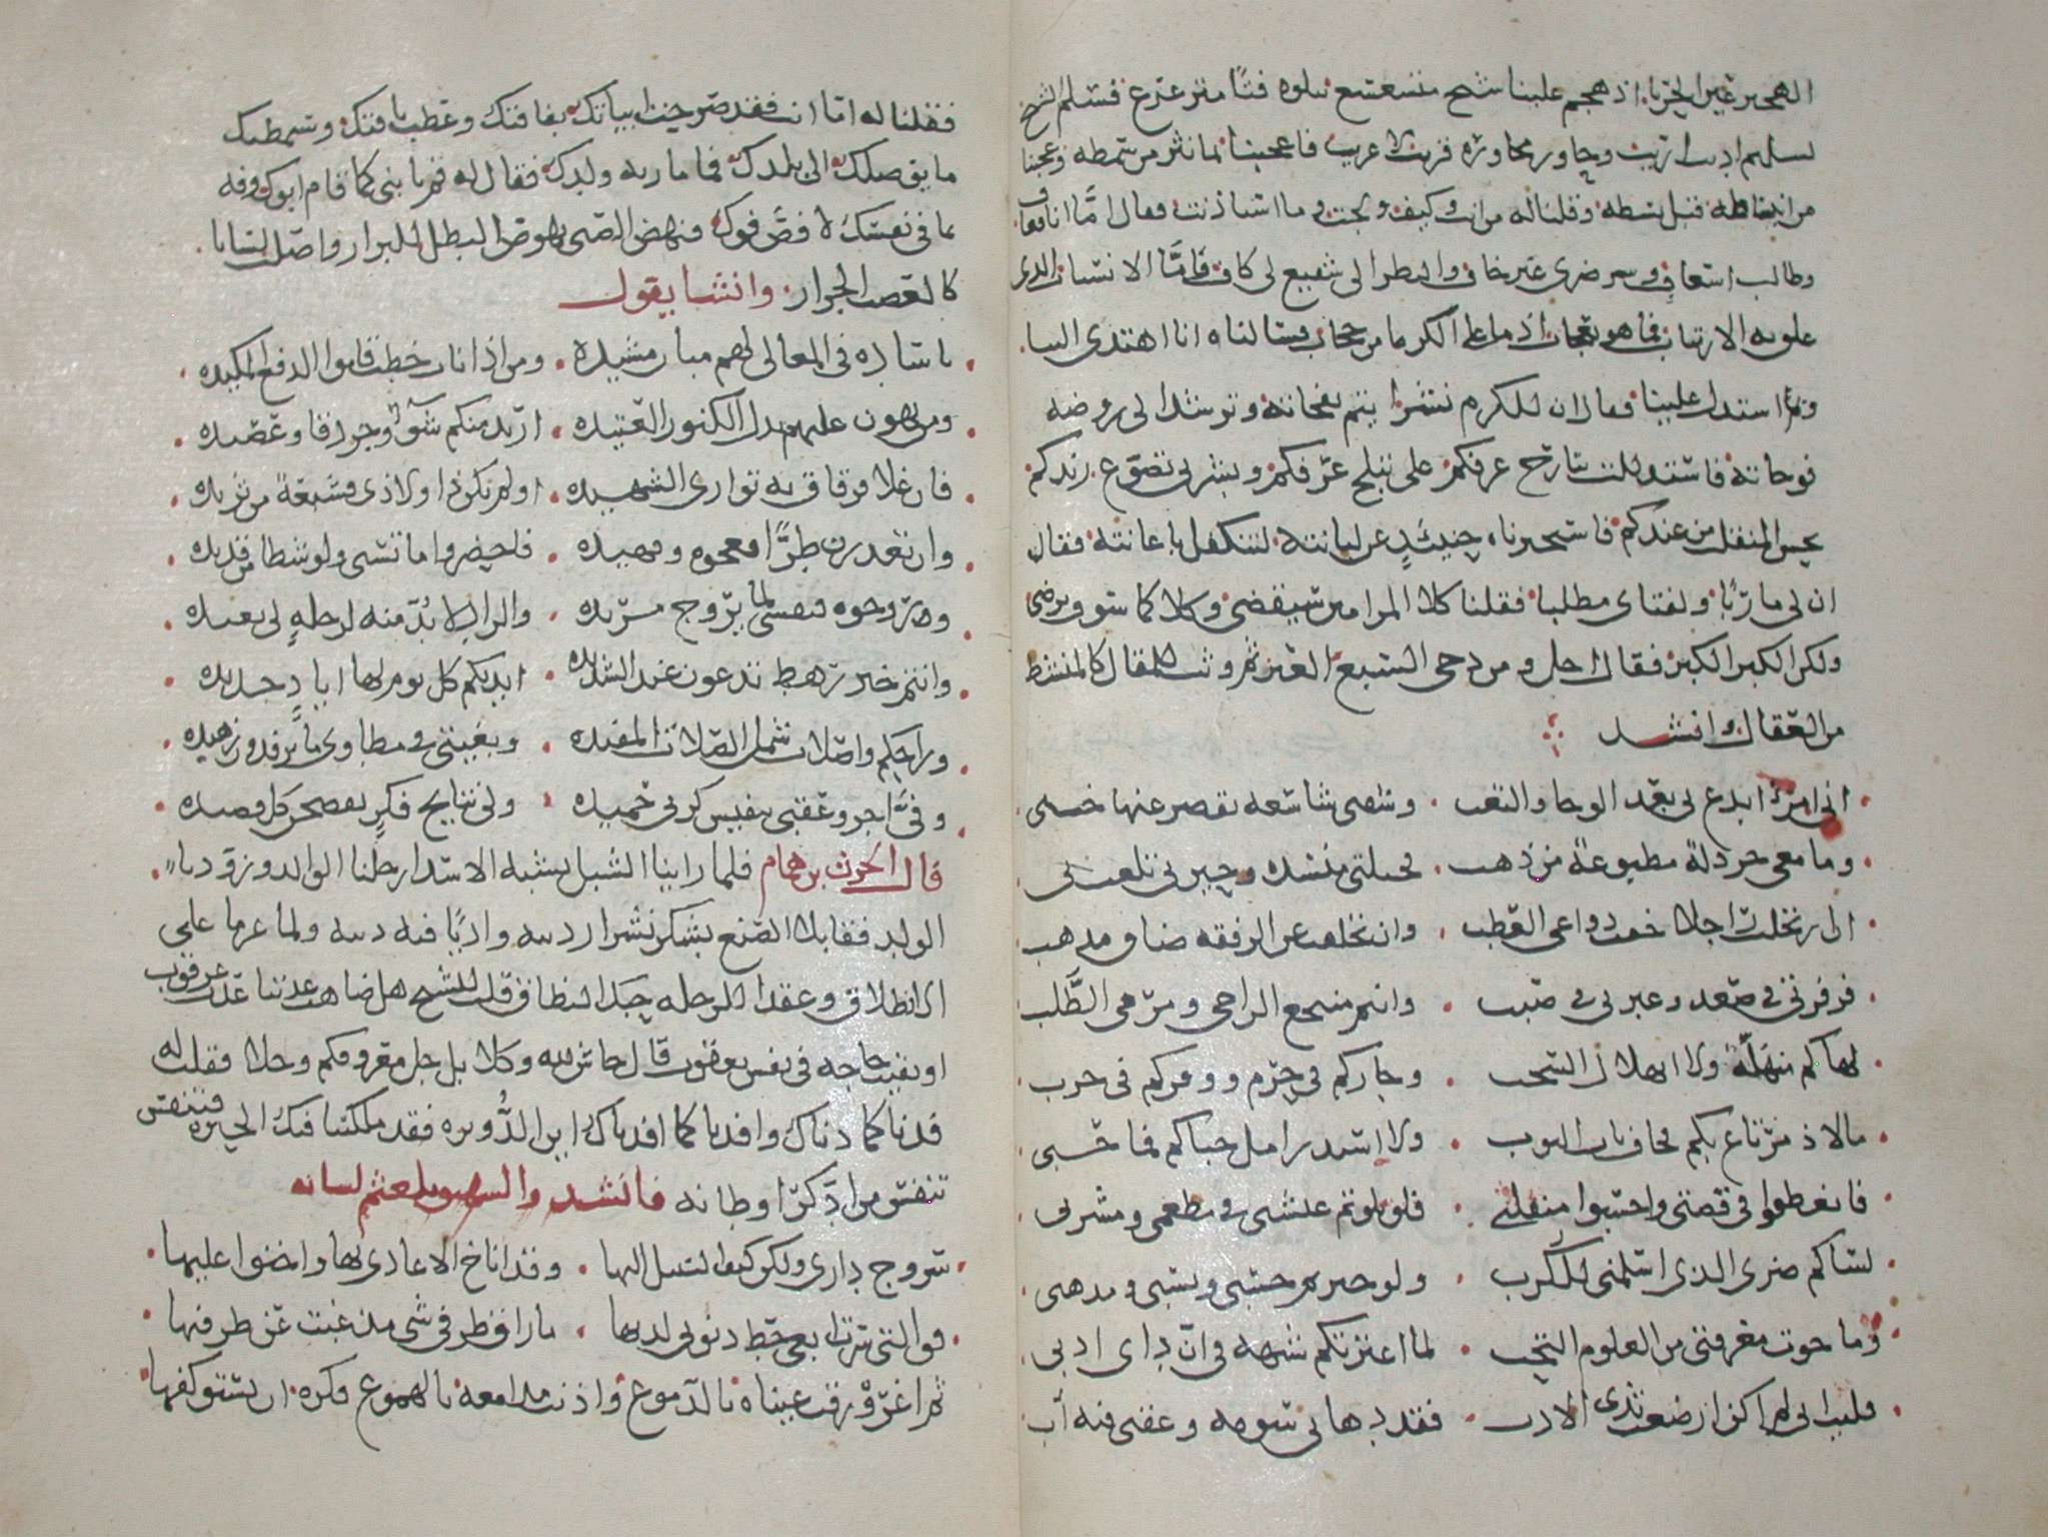 الهجير عين الحربا اذ هجم علينا شيخ متسعسع يتلوه فتًا مترعرع فسلم الشيخ
تسليم اديب اريب وحاور محاورة قريب لا غريب فاعجبنا بما نثر من سمطه وعجبنا
من انبساطه قبل بسطه وقلنا له من انت وكيف ولجت وما استاذنت فقال امَّا انا فعاف
وطالب اسعاف وسر ضري غير خاف والنظر الي شفيع لي كاف فامَّا الانسياب الذي
علق به الارتياب فما هو بعجاب اذ ما على الكرما من حجاب فسالناه انا اهتدى الينا
وبم استدل علينا فقال ان للكرم نشرا ينم بنفحاته وترشد الى روضه
فوحاته فاستدللت بتارج عرفكم على تبلج عرفكم وبشرني تضوع رندكم
بحسن المنقلب من عندكم فاستخبرناه حينئذٍ عن لبانته لنتكفل باعانته فقال
ان لي ماربًا ولفتاي مطلبا فقلنا كلا المرامين سيقضى وكلاكما سوف يرضى
ولكن الكبر الكبر فقال اجل ومن دحى السبع الغبر ثم وثب للمقال كالمنشط
من العقال وانشد
اني امرؤ ابدع بي بعد الوجا والتعب . وشقتي شاسعه يقصر عنها خببي
وما معي خردلة مطبوعة من ذهب . فحيلتي منسده وحيرتي تلعب بي
ان ارتحلت راجلا خفت دواعي العطب . وان تخلفت عن الرفقه ضاق مذهبي
فزفرتي في صعد وعبرتي في صبب . وانتم منتجع الراجي ومرمى الطَّلب
لهاكم منهلَّة ولا انهلال السحب . وجاركم في حرم ووفركم في حرب
ما لاذ مرتاع بكم فخاف ناب النوب . ولا استدر امل حباكم فما حبي
فانعطفوا في قصتي واحسنوا منقلبي . فلو بلوتم عيشتي في مطعمي ومشربي
لساكم ضري الذي اسلمني للكُرب . ولو خبرتم حسبي ونسبي ومذهبي
وما حوت معرفتي من العلوم النخب . لما اعترتكم شبهه في انّ دائي ادبي
فليت اني لم اكن ارضعت ثدي الادب . فقد دهاني شومه وعقني فيه اب
فقلنا له امّا انت فقد صرحت ابياتك بفاقتك وعطب ناقتك وسنمطيك
ما يوصلك الى بلدك فما ماربه ولدك فقال له قم يا بني كما قام ابوك وفه
بما في نفسك لا فضَّ فوك فنهض الفتى نهوض البطل للبراز واصلت لسانا
كالعضب الجراز وانشا يقول
يا سادة في المعالي لهم مبان مشيده . ومن اذا ناب خطب قاموا الدفع المكيده
ومن يهون عليهم بذل الكنوز العتيده . اريد منكم شوآءً وجردقا وعصيده
فان غلا فرقاق به توارى الشهيده . او لم يكن ذا ولا ذي فشبعة من ثريده
وان تعذرن طرًّا فعجوه ونهيده . فاحضروا ما تسنى ولو شظا من قديده
وروحوه فنفسي لما يروج مريده . والزاد لا بُدّ منه لرحلهٍ لي بعيده
وانتم خير رهط تدعون عند الشديده . ايديكم كل يوم لها ايادٍ جديده
وراحكم واصلات شمل الصلات المفيده . وبغيتي في مطاوي ما ترفدون زهيده
وفيَّ اجر وعقبى تنفيس كربي حميده . ولي نتايج فكرٍ يفضحن كل قصيده
قال الحرث بن همام فلما راينا الشبل يشبه الاسد ارحلنا الوالد وزودنا
الولد فقابلا الصنع بشكر نشرا رديه واديا فيه ديه ولما عزما على
الانطلاق وعقدا للرحله حبك النطاق قلت للشيخ هل ضاهت عدتنا عدت عرقوب
او بقيت حاجه في نفس يعقوب قال حاش لله وكلا بل جل معروفكم وجلا فقلت له
فدنا كما دناك وافدنا كما افدناك اين الدُّويره فقد ملكتنا فيك الحيره فتنفس
تنفس من ادَّكر اوطانه فانشد والشهيق يلعثم لسانه
سروج داري ولكن كيف السبيل اليها . وقد اناخ الاعادي بها واخنوا عليها
فوالتي سرت ابغي حط ذنوبي لديها . ما راق طرفي شي مذ غبت عن طرفيها
ثم اغرورقت عيناه بالدموع واذنت مدامعه بالهموع فكره ان يستوكفها